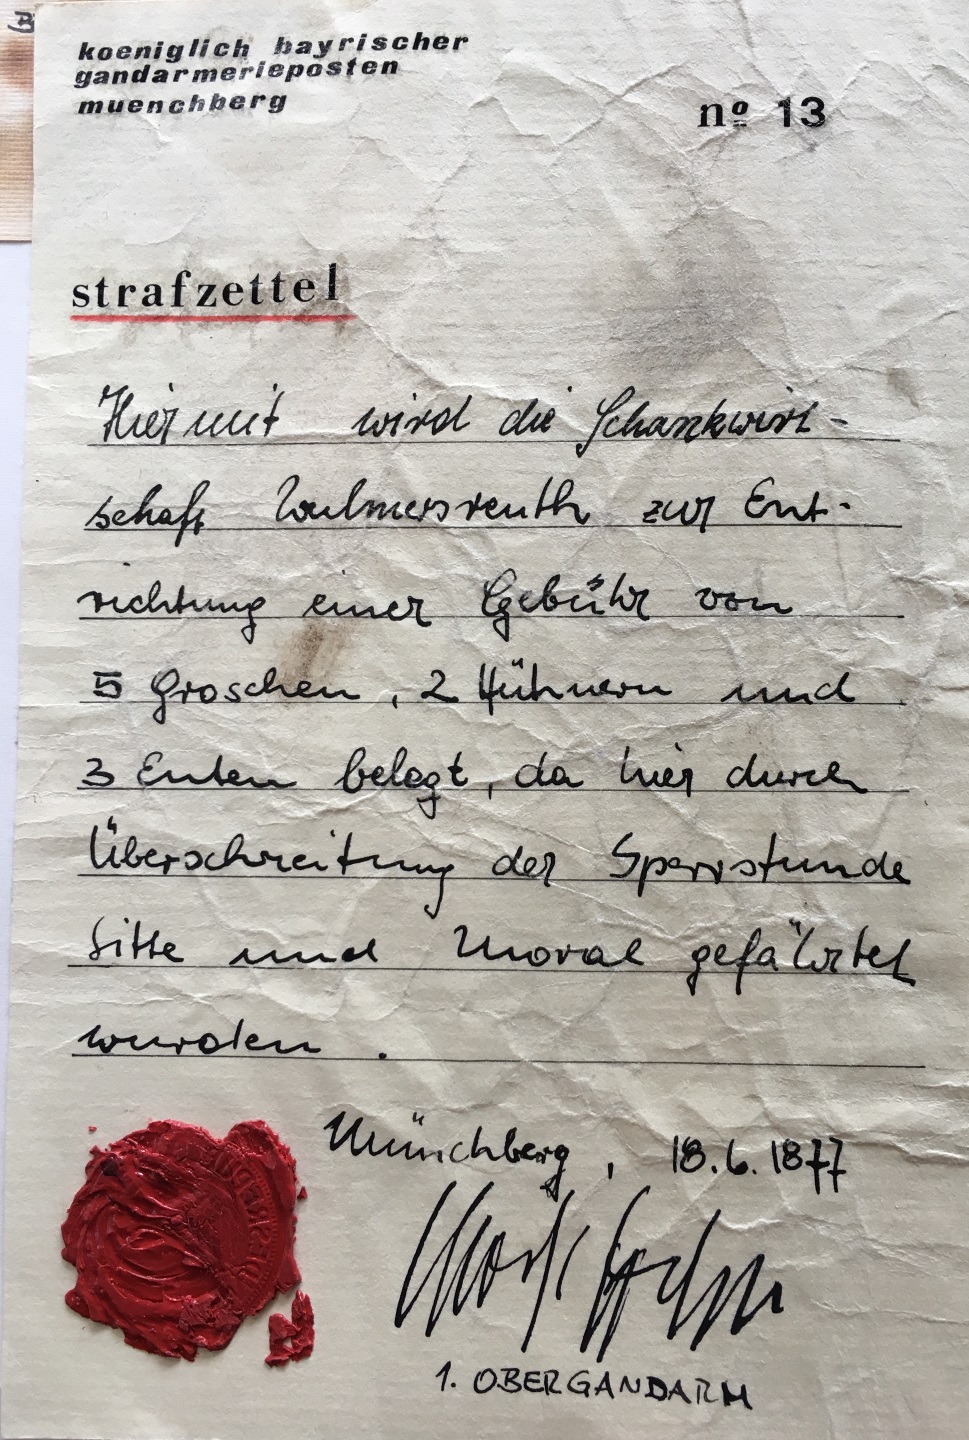 koeniglich bayrischer
gandarmerieposten
muenchberg
nº 13
strafzettel
Hiermit wird die Schankwirt-
schaft Wulmersreuth zur Ent-
richtung einer Gebühr von
5 Groschen, 2 Hühnern und
3 Enten belegt, da hier durch
Überschreitung der Sperrstunde
Sitte und Moral gefährtet
wurden.
Münchberg, 18.6.1877
1. OBERGANDARM